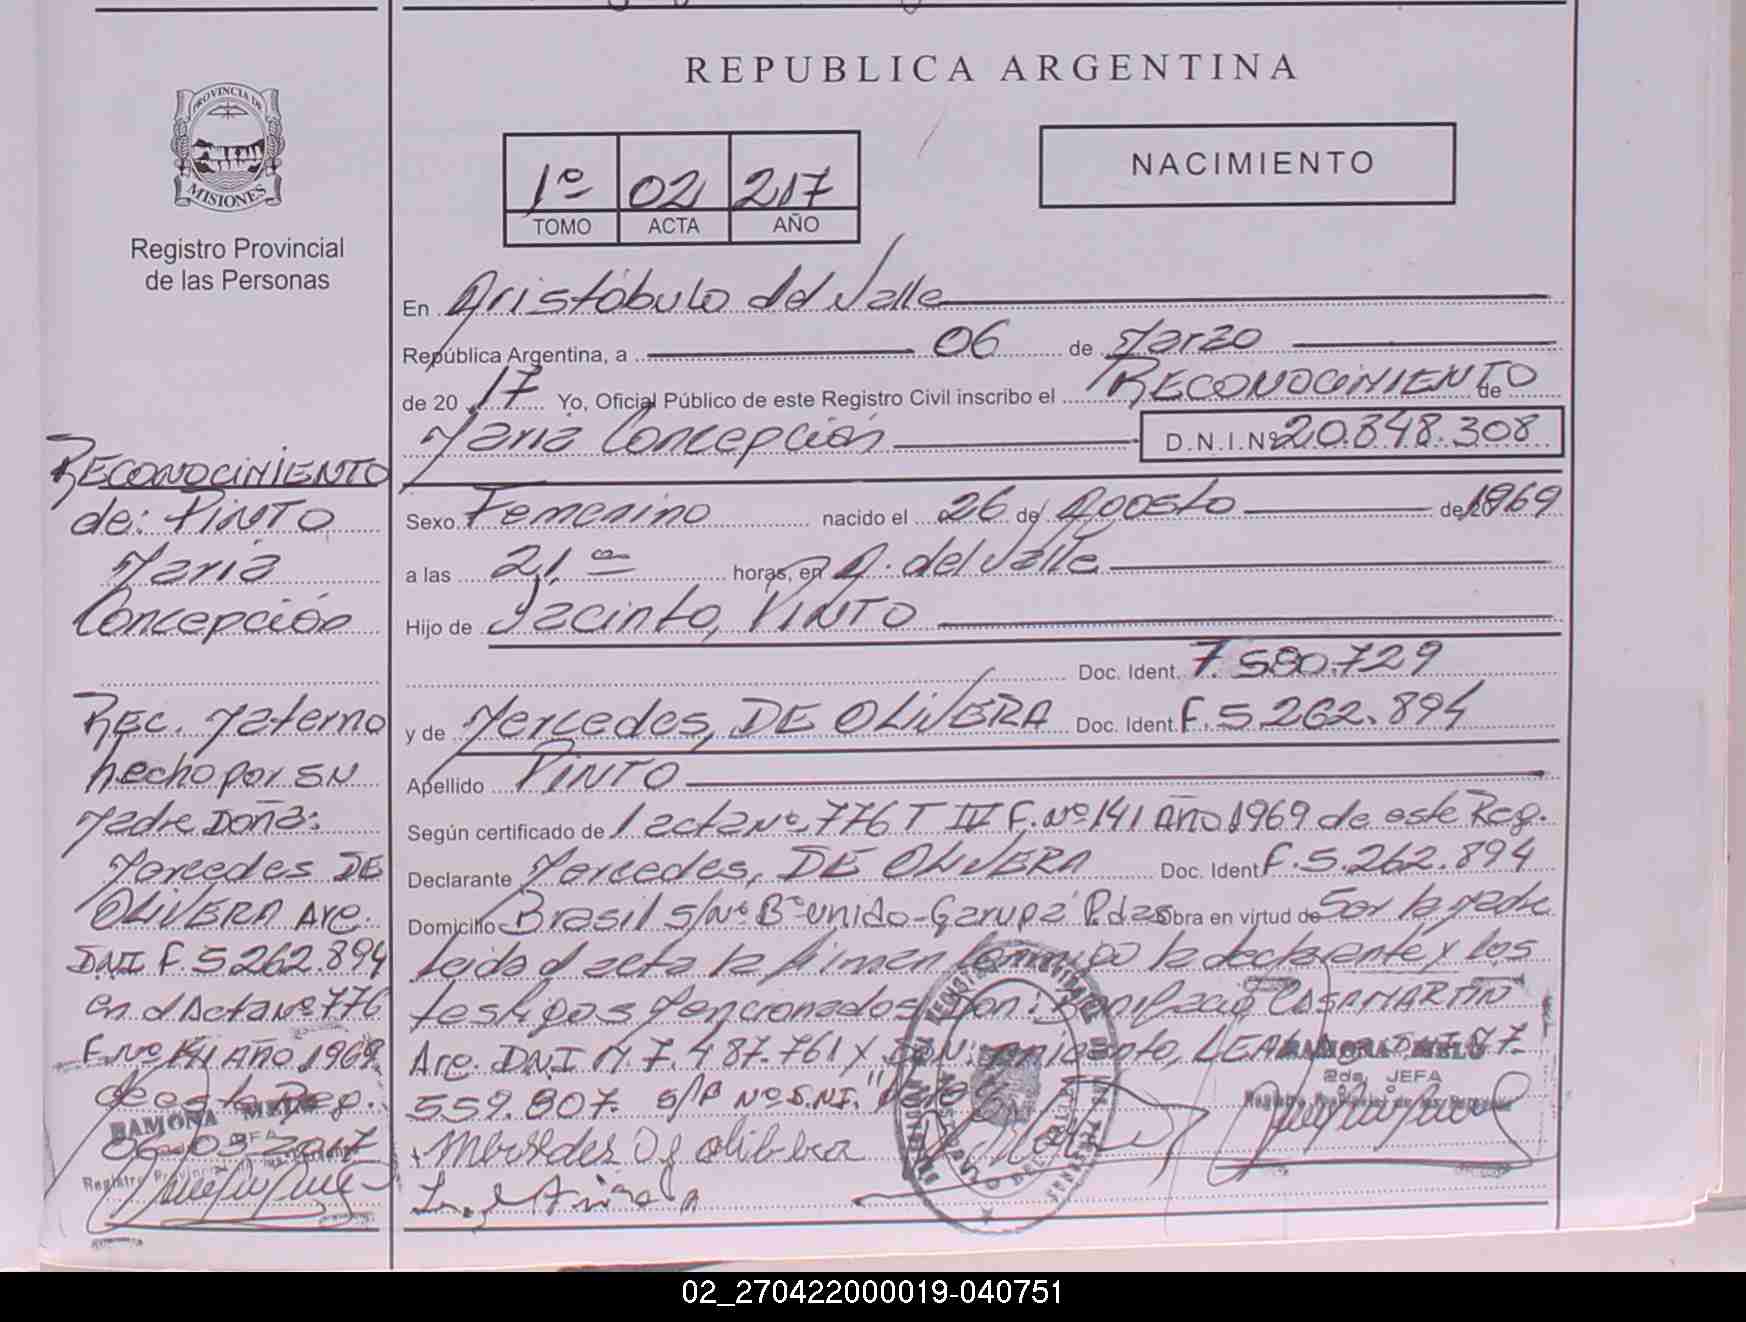 REPUBLICA ARGENTINA
PROVINCIA DE
MISIONES
Registro Provincial
de las Personas
1º 02 217
TOMO ACTA AÑO
NACIMIENTO
En Aristóbulo del Valle
República Argentina, a 06 de Marzo
de 20 17 Yo, Oficial Público de este Registro Civil inscribo el RECONOCIMIENTO de
María Concepción D.N.I.Nº 20.848.308
Sexo Femenino nacido el 26 de Agosto de 1969
a las 21,ºº horas, en A. del Valle
Hijo de Jacinto, PINTO
Doc. Ident. 7.580.729
y de Mercedes, DE OLIVERA Doc. Ident. F.5.262.894
Apellido PINTO
Según certificado de l acta Nº 776 T IV F.Nº 141 Año 1969 de este Reg.
Declarante Mercedes, DE OLIVERA Doc. Ident F.5.262.894
Domicilio Brasil s/Nº Bº unido-Garupá P.das Obra en virtud de Ser la Madre
Leida el acta la firman conmigo la declarante y los
testigos Mencionados Don: Bonifacio CASAMARTIN
Arg. D.N.I M.7.487.761 y Don: LEAL D.N.I 87.
559.807. s/P Nº D.N.I. "Vale
Mersedes D olibera
RAMONA MELO
2da. JEFA
Registro Provincial de las Personas
RECONOCIMIENTO
de: PINTO
María
Concepción
Rec. Materno
hecho por su
Madre Doña:
Mercedes DE
OLIVERA Arg.
DNI F.5.262.894
en el Acta Nº 776
F.Nº 141 Año 1969.
de este Reg.
RAMONA MELO
06-03-2017
JEFA
Registro Provincial de las Personas
02_270422000019-040751